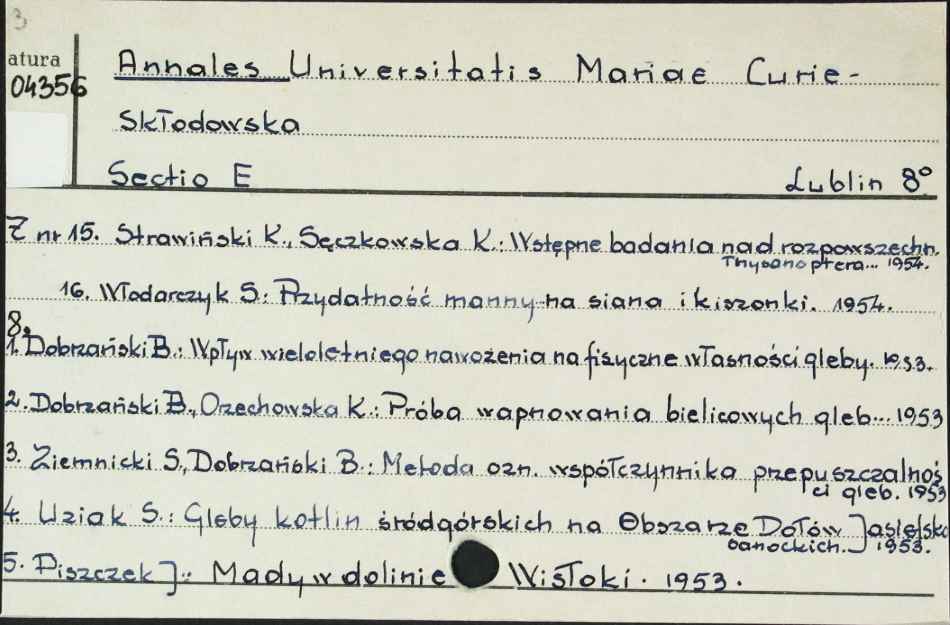 3
atura
04356
Annales Universitatis Mariae Curie-
Skłodowska
Sectio E Lublin 8°
Z nr 15. Strawiński K., Sęczkowska K.: Wstępne badania nad rozpowszechn.
Thysanoptera... 1954.
16. Włodarczyk S.: Przydatność manny na siana i kiszonki. 1954.
8.
1. Dobrzański B.: Wpływ wieloletniego nawożenia na fizyczne własności gleby. 1953.
2. Dobrzański B., Orzechowska K.: Próba wapnowania bielicowych gleb... 1953
3. Ziemnicki S., Dobrzański B.: Metoda ozn. współczynnika przepuszczalnoś
ci gleb. 1953
4. Uziak S.: Gleby kotlin śródgórskich na Obszarze Dołów Jasielsko
Sanockich. 1953.
5. Piszczek J.: Mady w dolinie Wisłoki. 1953.